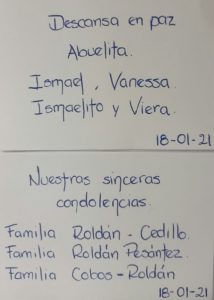 Descansa en paz
Abuelita.
Ismael, Vanessa.
Ismaelito y Viera.
18-01-21
Nuestras sinceras
condolencias.
Familia Roldán - Cedillo.
Familia Roldán Pesántez.
Familia Cobos - Roldán
18-01-21